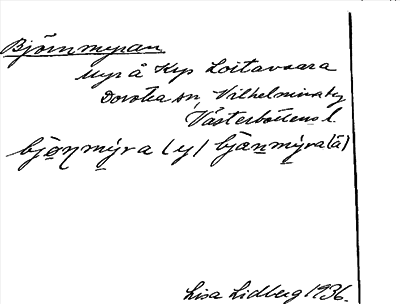 Björnmyran
Myr å Krp Loitavaara
Dorotea sn, Vilhelmina tg
Västerbottens l.
bjo̱ɳmy̱ra (y) bjäṉmy̱ra (ä)
Lisa Lidberg 1936.